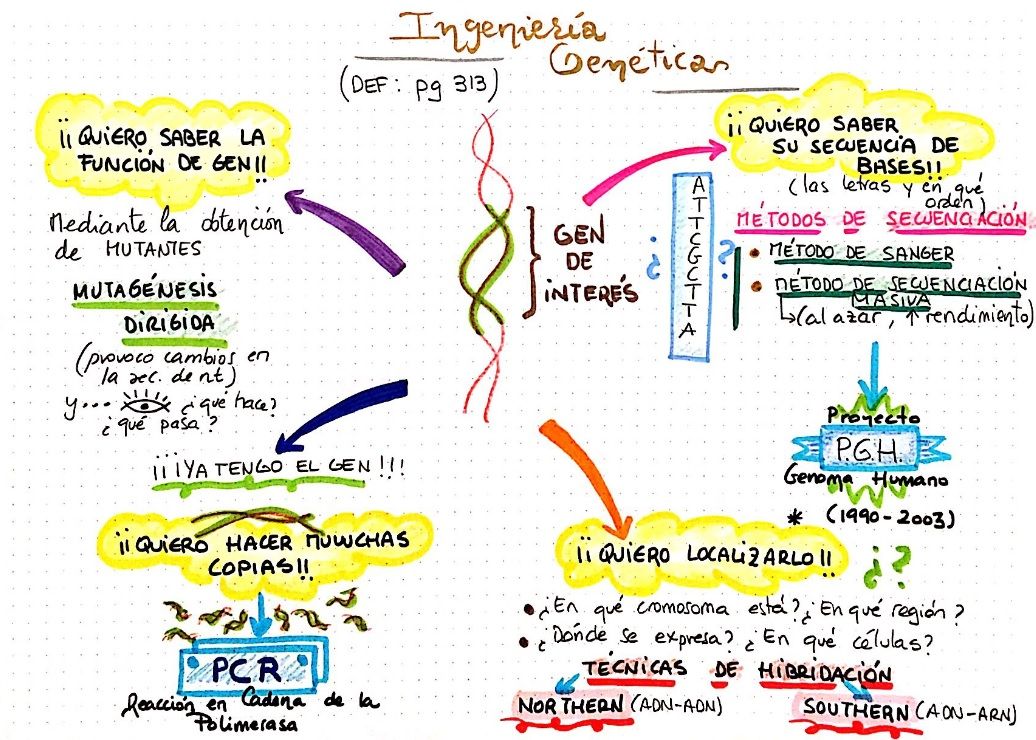 Ingeniería
Genética
(DEF: pg 313)
¡¡QUIERO SABER LA
FUNCIÓN DE GEN!!
Mediante la obtención
de MUTANTES
MUTAGÉNESIS
DIRIGIDA
(provoco cambios en
la sec. de nt)
y... ¿qué hace?
¿qué pasa?
GEN
DE
INTERÉS
¡¡QUIERO SABER
SU SECUENCIA DE
BASES!!
(las letras y en qué
orden)
¿ATTCGCTTA?
MÉTODOS DE SECUENCIACIÓN
• MÉTODO DE SANGER
• MÉTODO DE SECUENCIACIÓN
MASIVA
(al azar, ↑ rendimiento)
Proyecto
P.G.H.
Genoma Humano
* (1990-2003)
¡¡¡YA TENGO EL GEN!!!
¡¡QUIERO HACER MUUCHAS
COPIAS!!
PCR
Reacción en Cadena de la
Polimerasa
¡¡QUIERO LOCALIZARLO!!
¿?
• ¿En qué cromosoma está? ¿En qué región?
• ¿Dónde se expresa? ¿En qué células?
TÉCNICAS DE HIBRIDACIÓN
NORTHERN (ADN-ADN)
SOUTHERN (ADN-ARN)